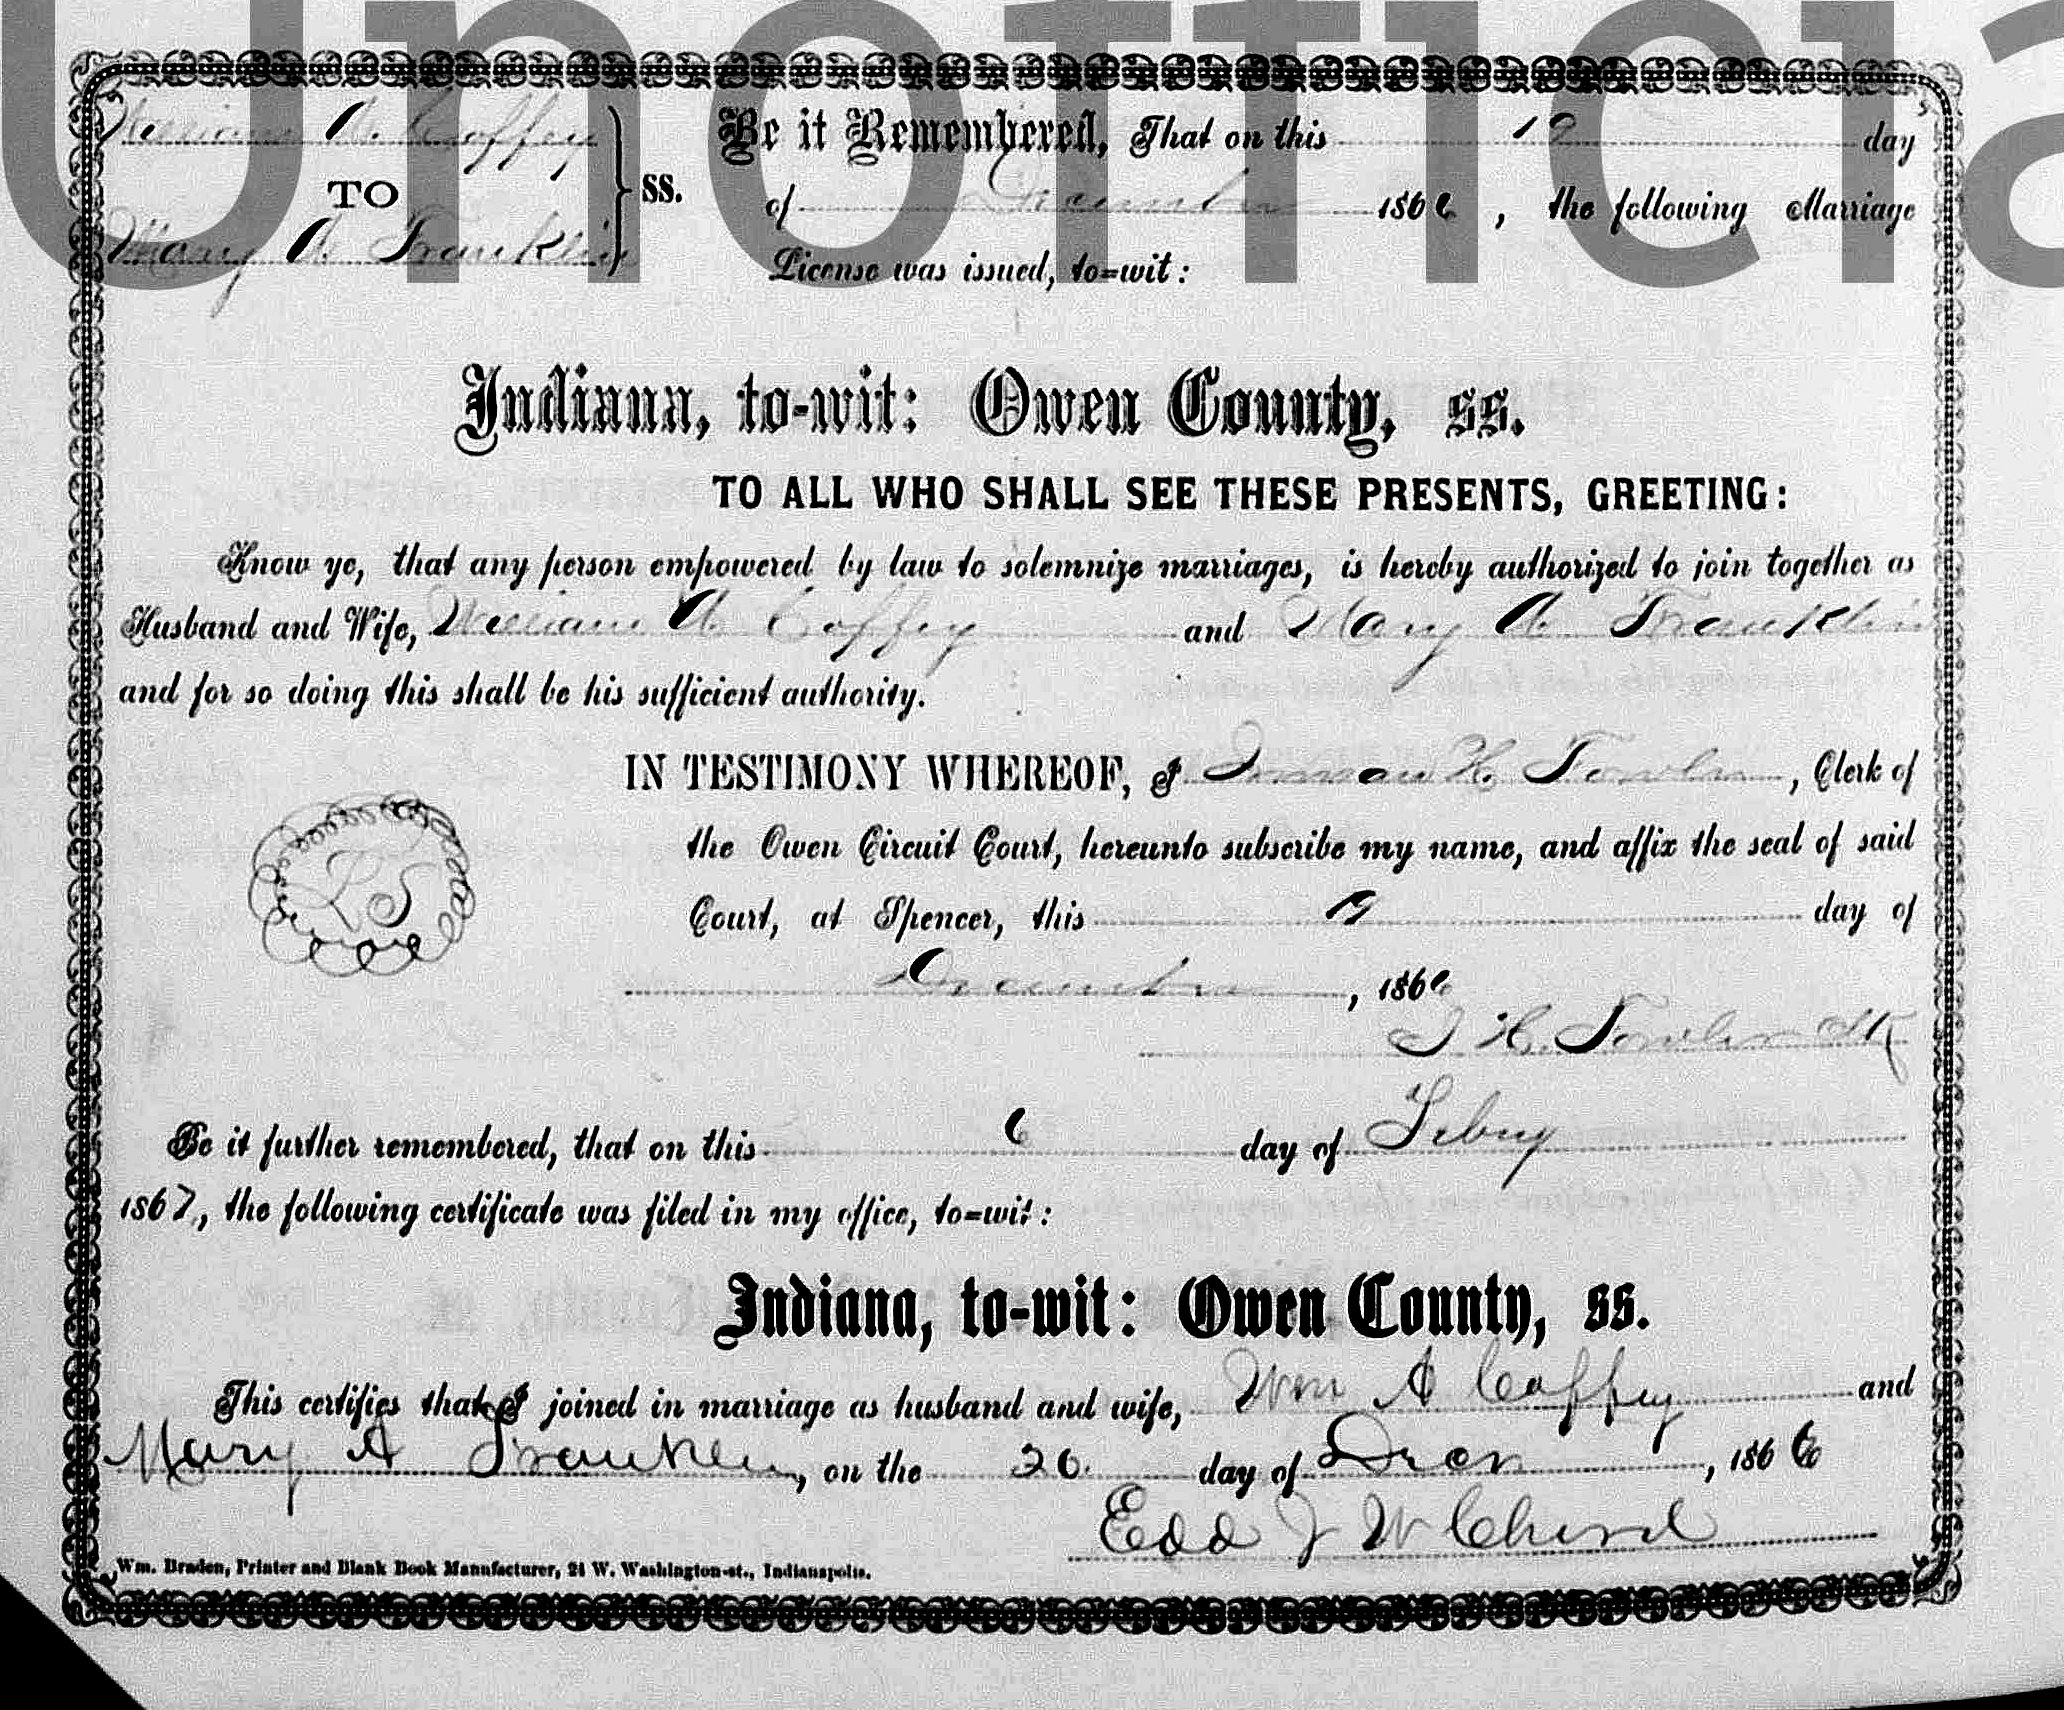 Unofficia
William A. Coffey
TO
Mary A Franklin
ss.
Be it Remembered, That on this 19 day
of December 1866, the following Marriage
License was issued, to=wit:
Indiana, to-wit: Owen County, ss.
TO ALL WHO SHALL SEE THESE PRESENTS, GREETING:
Know ye, that any person empowered by law to solemnize marriages, is hereby authorized to join together as
Husband and Wife, William A. Coffey and Mary A. Franklin
and for so doing this shall be his sufficient authority.
IN TESTIMONY WHEREOF, I Inman H. Fowler, Clerk of
the Owen Circuit Court, hereunto subscribe my name, and affix the seal of said
LS
Court, at Spencer, this 19 day of
December, 1866
I H. Fowler Clk
Be it further remembered, that on this 6 day of Febuy
1867, the following certificate was filed in my office, to=wit:
Indiana, to-wit: Owen County, ss.
This certifies that I joined in marriage as husband and wife, Wm A Coffey and
Mary A Franklin, on the 20. day of Decr, 1866
Edd W
Wm. Braden, Printer and Blank Book Manufacturer, 21 W. Washington-st., Indianapolis.